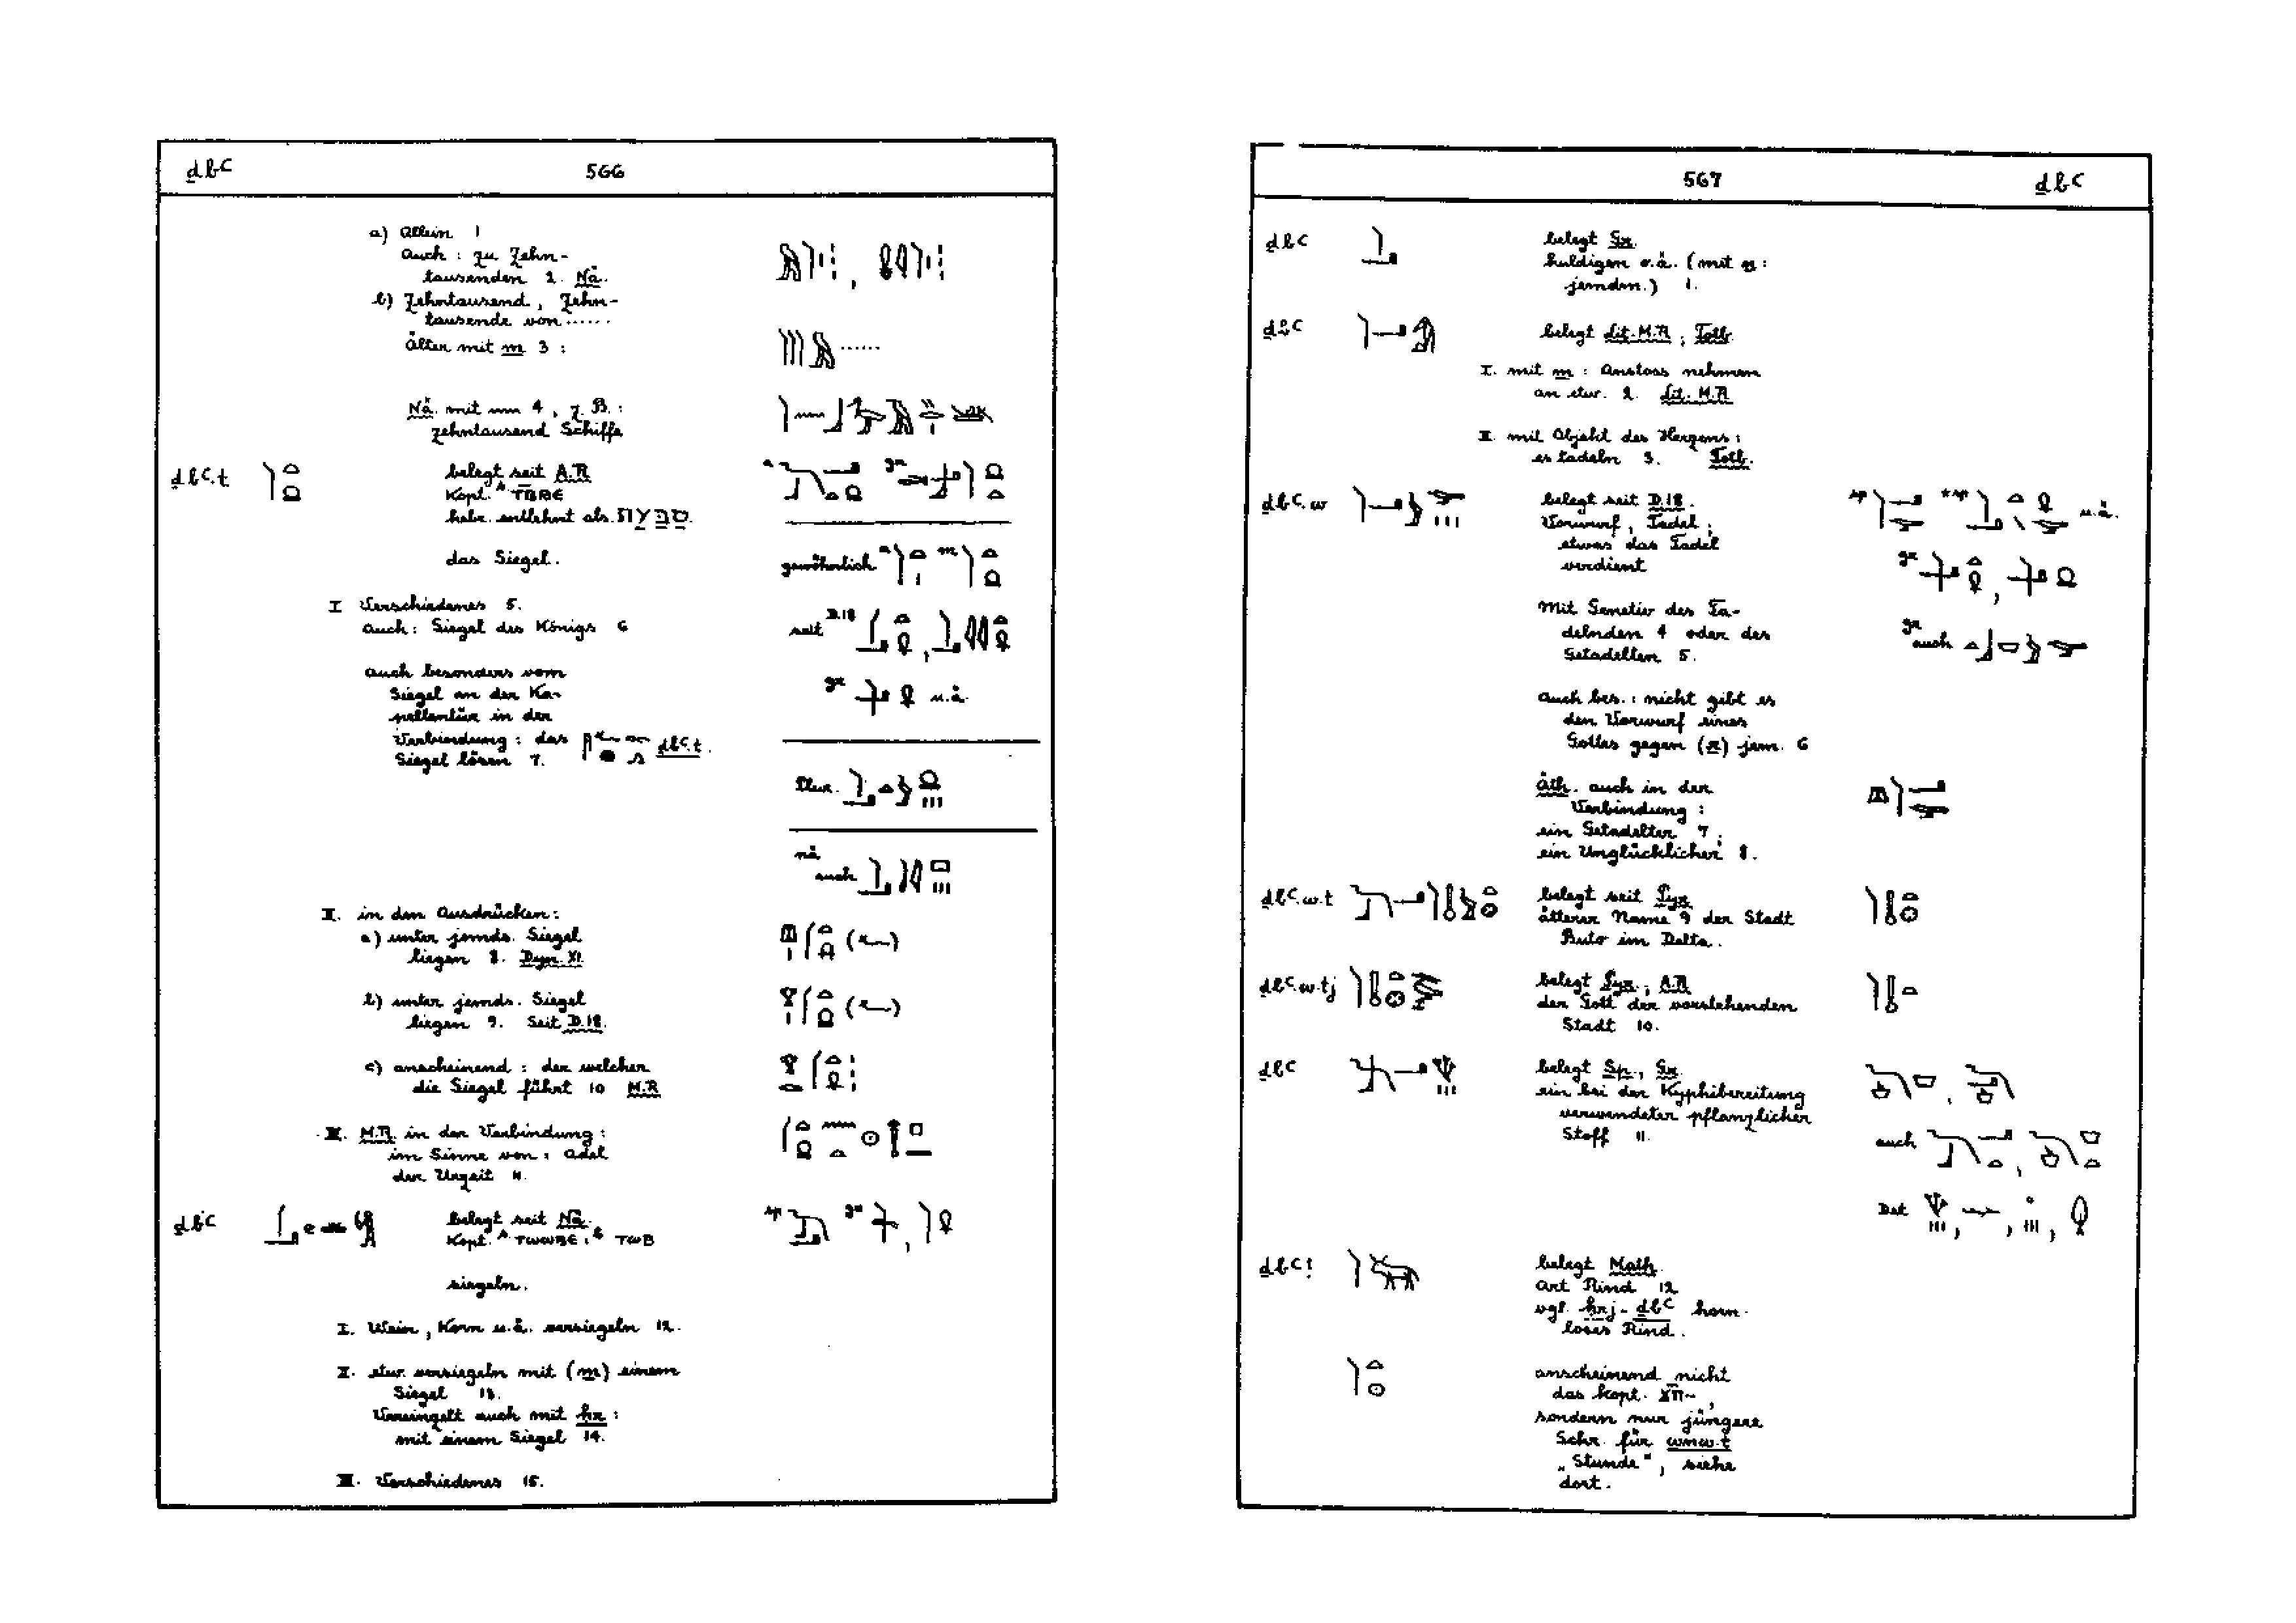 ḏbꜥ 566
a) Allein 1
Auch : zu Zehn-
tausenden 2. Nä.
b) Zehntausend, Zehn-
tausende von ......
Älter mit m 3 :
Nä. mit nn 4, z. B. :
zehntausend Schiffe
ḏbꜥ.t
belegt seit A.R.
Kopt.
hebr. entlehnt als טַבַּעַת.
das Siegel.
gewöhnlich
I Verschiedenes 5.
auch : Siegel des Königs 6
seit D.18
auch besonders vom
Siegel an der Ka-
pellentür in der
Verbindung : das ḏbꜥ.t.
Siegel lösen 7.
gr. u.ä.
Plur.
nä. auch
II. in den Ausdrücken :
a) unter jemds. Siegel
liegen 8. Dyn. XI.
b) unter jemds. Siegel
liegen 9. Seit D.18.
c) anscheinend : der welcher
die Siegel führt 10 M.R.
III. M.R. in der Verbindung :
im Sinne von : Adel
der Urzeit 11.
ḏbꜥ
belegt seit Nä.
Kopt. ⲧⲱⲱⲃⲉ, ⲧⲱⲃ
siegeln.
I. Wein, Korn u.ä. versiegeln 12.
II. etw. versiegeln mit (m) einem
Siegel 13.
Vereinzelt auch mit ḥr :
mit einem Siegel 14.
III. Verschiedenes 15.
567 ḏbꜥ
ḏbꜥ
belegt Gr.
huldigen o.ä. (mit n :
jemdm.) 1.
ḏbꜥ
belegt Lit. M.R.; Totb.
I. mit m : Anstoss nehmen
an etw. 2. Lit. M.R.
II. mit Objekt des Herzens :
es tadeln 3. Totb.
ḏbꜥ.w
belegt seit D.18.
Vorwurf, Tadel ;
etwas das Tadel
verdient
u.ä.
Mit Genetiv des Ta-
delnden 4 oder des
Getadelten 5.
gr. auch
Auch bes. : nicht gibt es
den Vorwurf eines
Gottes gegen (r) jem. 6
Äth. auch in der
Verbindung :
ein Getadelter 7 ;
ein Unglücklicher 8.
ḏbꜥ.w.t
belegt seit Pyr.
älterer Name 9 der Stadt
Buto im Delta.
ḏbꜥ.w.tj
belegt Pyr.; A.R.
der Gott der vorstehenden
Stadt 10.
ḏbꜥ
belegt Sp., Gr.
ein bei der Kyphibereitung
verwendeter pflanzlicher
Stoff 11.
auch
Det.
ḏbꜥ ?
belegt Math.
Art Rind 12
vgl. ḥrj-ḏbꜥ horn-
loses Rind.
anscheinend nicht
das kopt. ϫⲡ-,
sondern nur jüngere
Schr. für wnw.t
„Stunde“, siehe
dort.